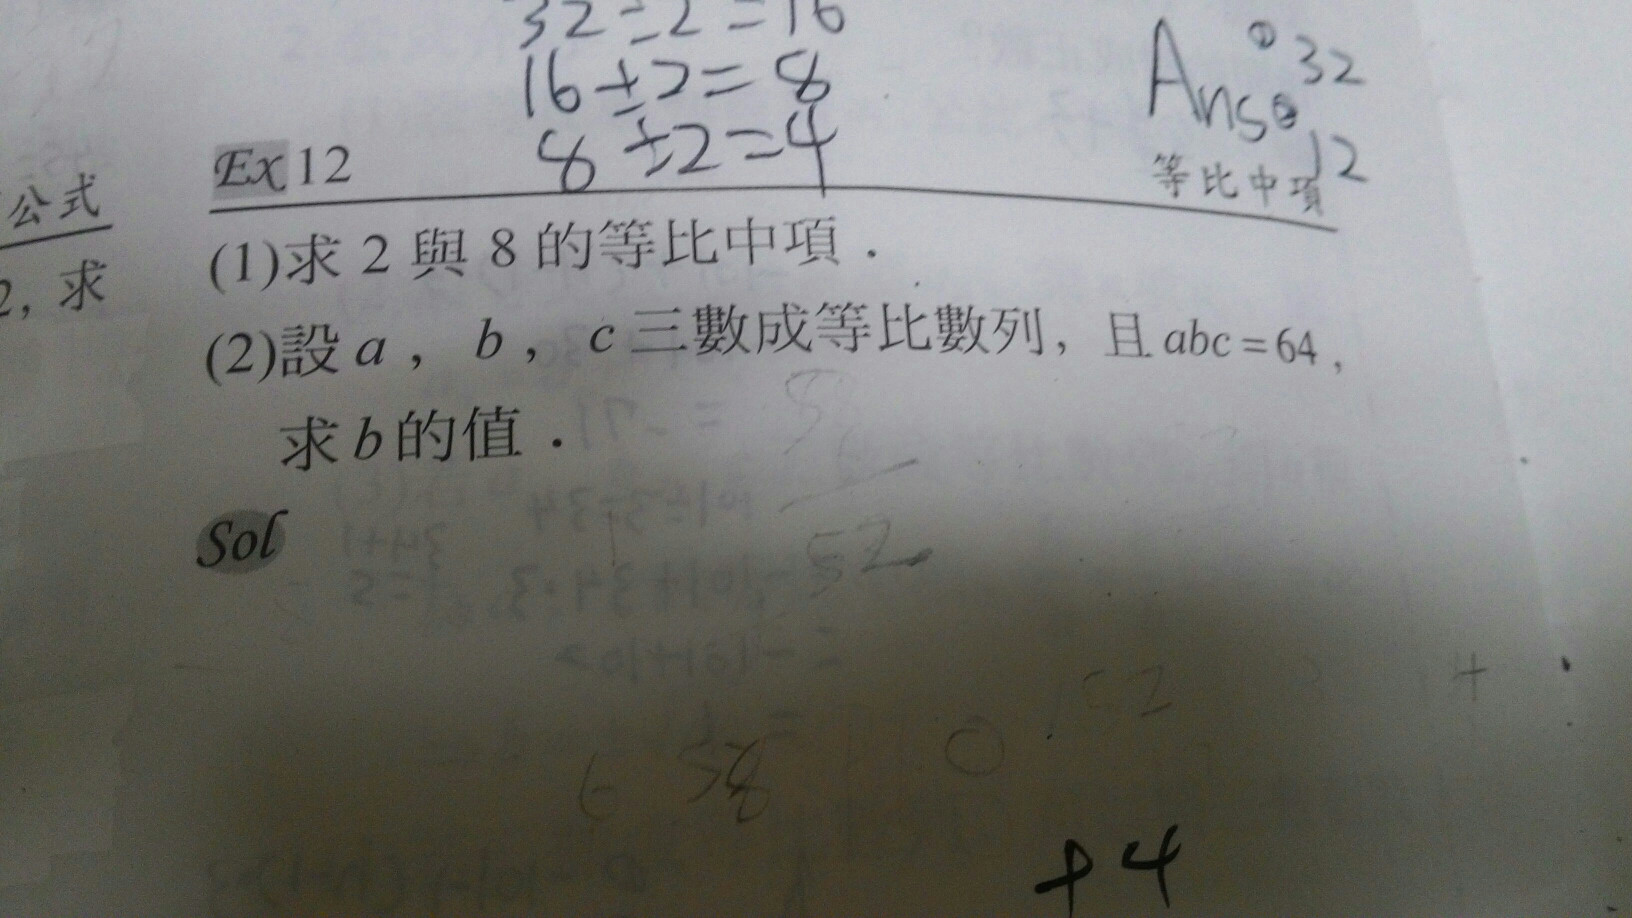 32÷2=16
16÷2=8
8÷2=4
Ans ① 32
② 12
Ex 12
等比中項
公式
2, 求
(1)求 2 與 8 的等比中項．
(2)設 a ， b ， c 三數成等比數列，且 abc = 64，
求 b 的值．
Sol
52
+4